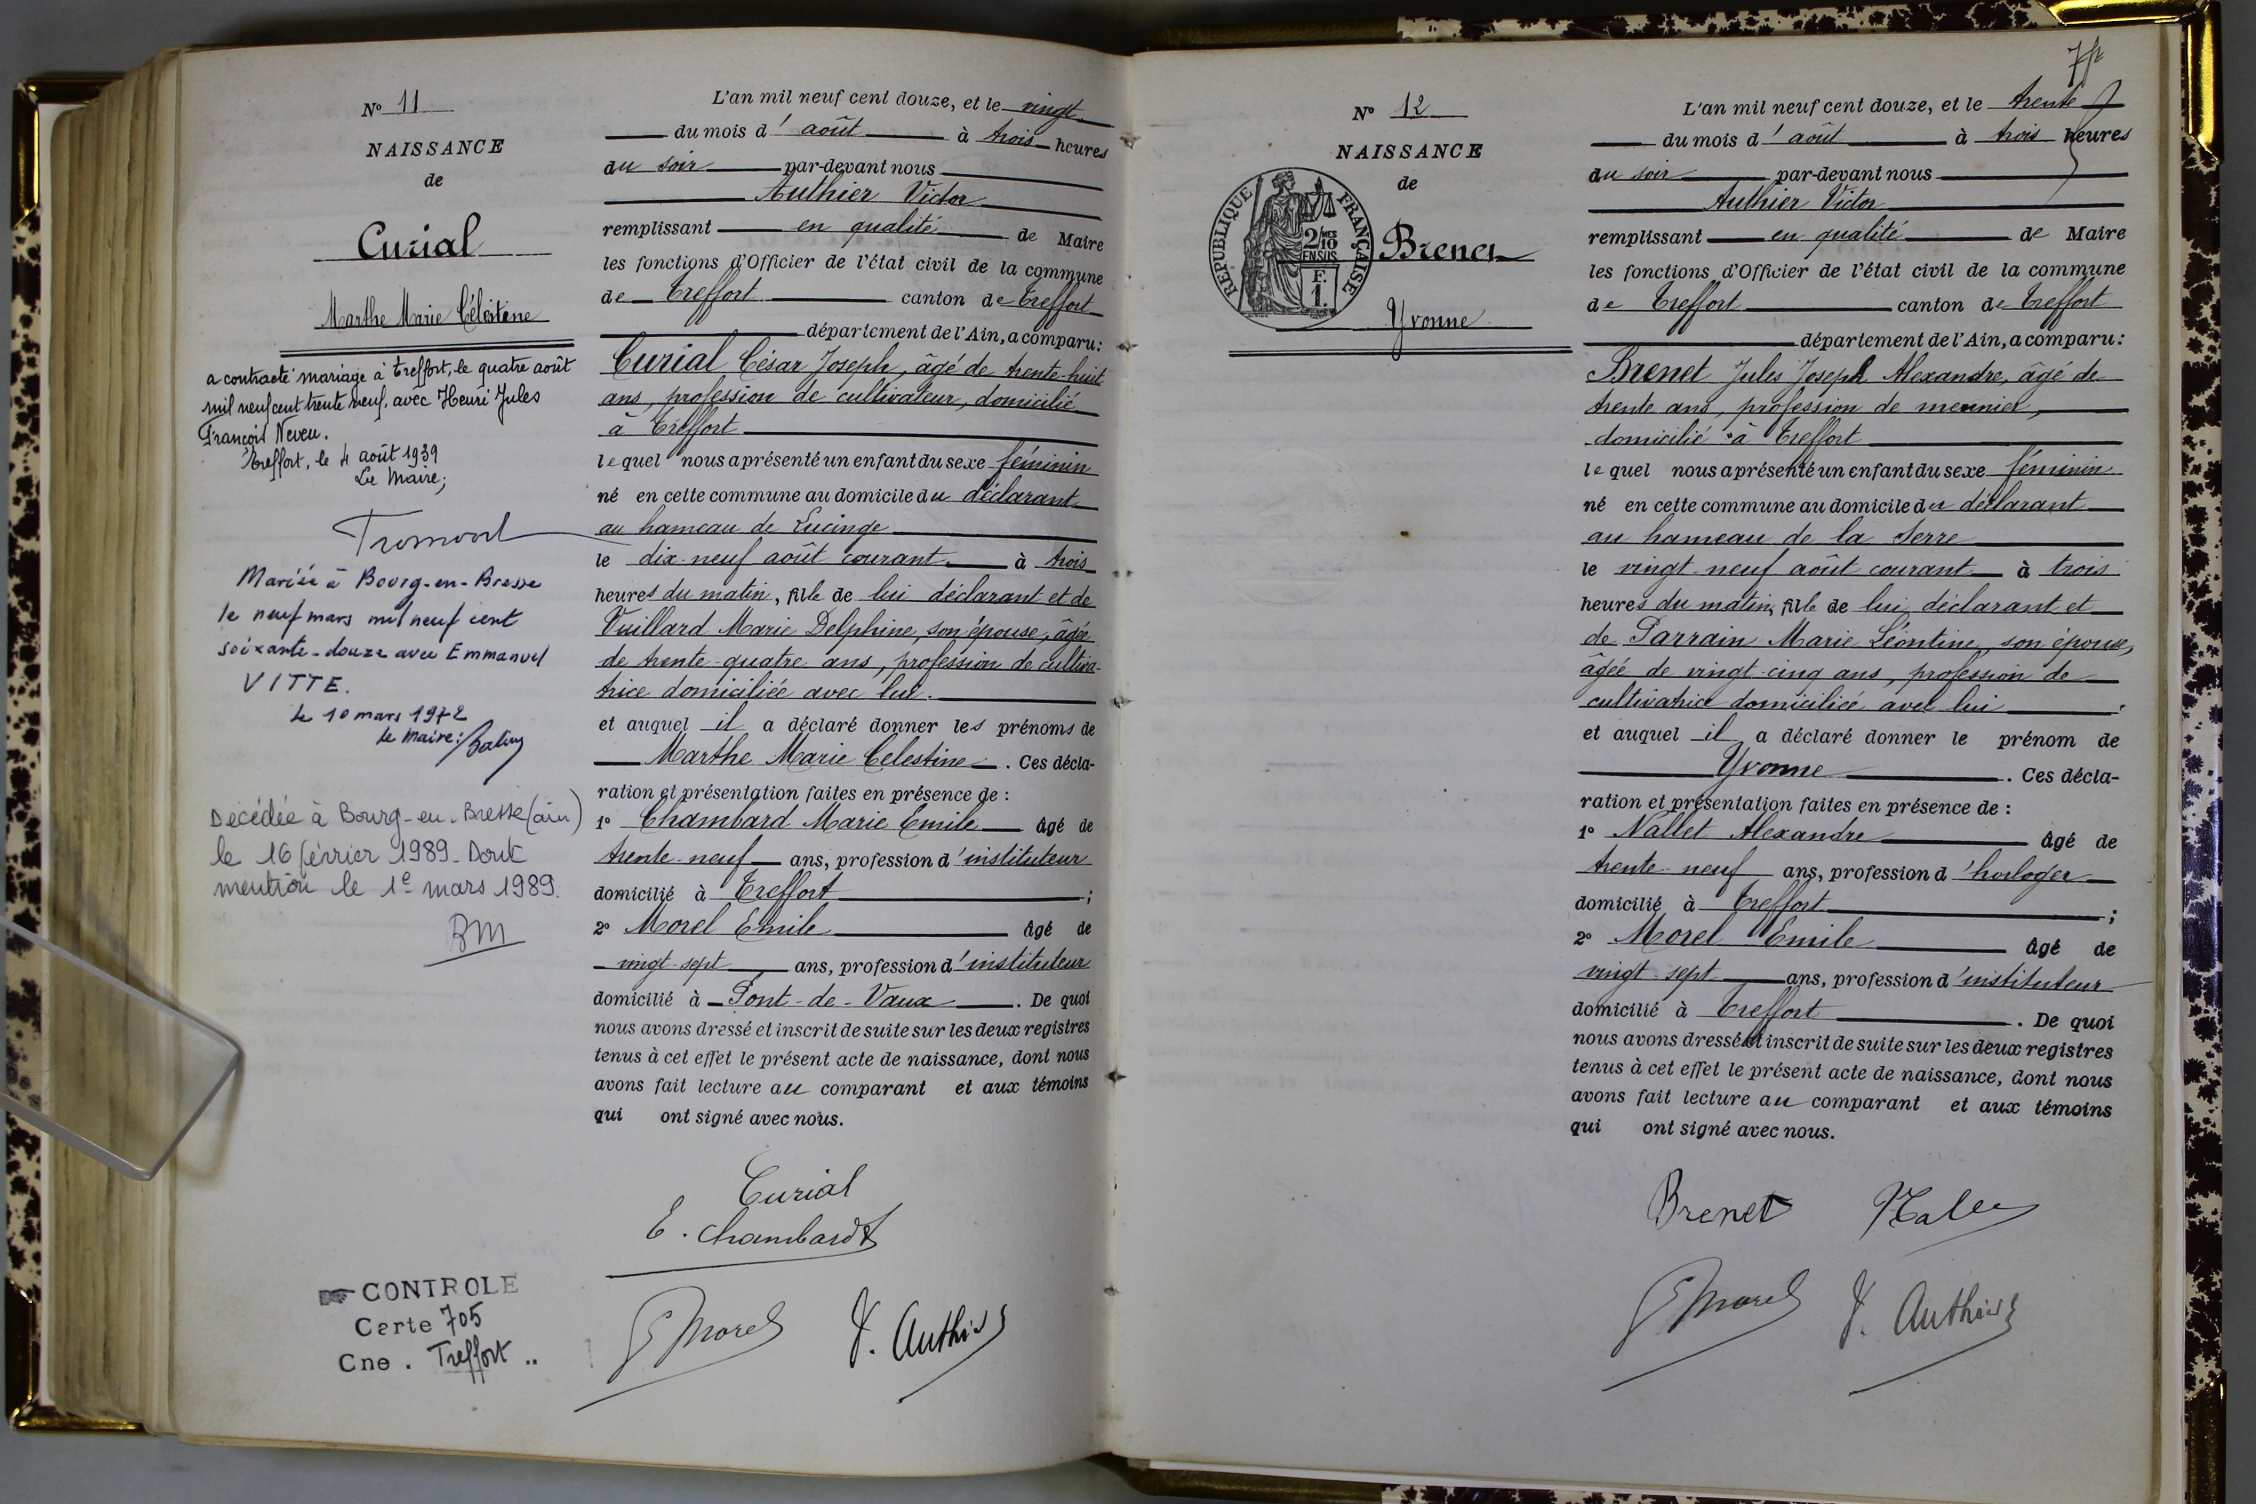 N° 11
NAISSANCE
de
Curial
Marthe Marie Célestine
a contracté mariage à Treffort, le quatre août
mil neuf cent trente neuf, avec Henri Jules
François Neveu.
Treffort, le 4 août 1939
Le Maire,
Mariée à Bourg-en-Bresse
le neuf mars mil neuf cent
soixante-douze avec Emmanuel
VITTE.
le 10 mars 1972
le Maire:
Décédée à Bourg-en-Bresse (ain)
le 16 février 1989. Dont
mention le 1e mars 1989.
BM
CONTROLE
Carte 705
Cne. Treffort..
L'an mil neuf cent douze, et le vingt
du mois d'août à trois heures
du soir par-devant nous
Authier Victor
remplissant en qualité de Maire
les fonctions d'Officier de l'état civil de la commune
de Treffort canton de Treffort
département de l'Ain, a comparu:
Curial César Joseph, âgé de trente-huit
ans, profession de cultivateur, domicilié
à Treffort
lequel nous a présenté un enfant du sexe féminin
né en cette commune au domicile du déclarant
au hameau de Lucinge
le dix-neuf août courant à trois
heures du matin, fille de lui déclarant et de
Vuillard Marie Delphine, son épouse, âgée
de trente-quatre ans, profession de cultiva-
trice domiciliée avec lui.
et auquel il a déclaré donner les prénoms de
Marthe Marie Celestine. Ces décla-
ration et présentation faites en présence de :
1° Chambard Marie Emile âgé de
trente-neuf ans, profession d'instituteur
domicilié à Treffort ;
2° Morel Emile âgé de
vingt-sept ans, profession d'instituteur
domicilié à Pont-de-Vaux. De quoi
nous avons dressé et inscrit de suite sur les deux registres
tenus à cet effet le présent acte de naissance, dont nous
avons fait lecture au comparant et aux témoins
qui ont signé avec nous.
Curial
E. Chambard
E Morel V. Authier
N° 12
NAISSANCE
de
RÉPUBLIQUE FRANÇAISE
2/MES
10
EN SUS
F.
1.
Brenet
Yvonne
L'an mil neuf cent douze, et le trente
du mois d'août à trois heures
du soir par-devant nous
Authier Victor
remplissant en qualité de Maire
les fonctions d'Officier de l'état civil de la commune
de Treffort canton de Treffort
département de l'Ain, a comparu:
Brenet Jules Joseph Alexandre, âgé de
trente ans, profession de meunier,
domicilié à Treffort
lequel nous a présenté un enfant du sexe féminin
né en cette commune au domicile du déclarant
au hameau de la Serre
le vingt-neuf août courant à trois
heures du matin, fille de lui déclarant et
de Parrain Marie Léontine, son épouse,
âgée de vingt-cinq ans, profession de
cultivatrice domiciliée avec lui ;
et auquel il a déclaré donner le prénom de
Yvonne. Ces décla-
ration et présentation faites en présence de :
1° Nallet Alexandre âgé de
trente-neuf ans, profession d'horloger
domicilié à Treffort ;
2° Morel Emile âgé de
vingt-sept ans, profession d'instituteur
domicilié à Treffort. De quoi
nous avons dressé et inscrit de suite sur les deux registres
tenus à cet effet le présent acte de naissance, dont nous
avons fait lecture au comparant et aux témoins
qui ont signé avec nous.
Brenet
E Morel V. Authier